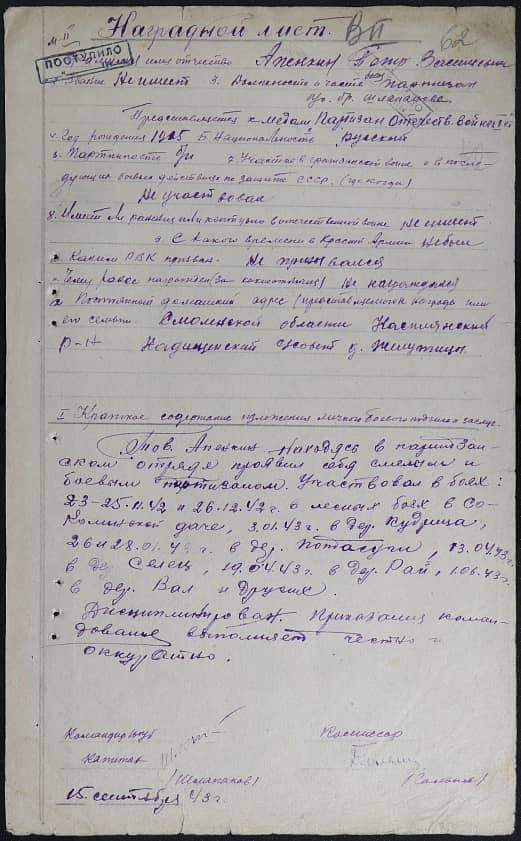 Наградной лист. ВП
62
ПОСТУПИЛО
имя отчество Апенкин
Звание Не имеет 3. Должность и часть партизан
Представляется к медали Партизан Отечеств. войны
4. Год рождения 1925 5. Национальность русский
6. Партийность б/п 7. Участие в гражданской войне и в после-
дующих боевых действиях по защите СССР. (где когда)
Не участвовал
8. Имеет ли ранения или контузию в отечественной войне не имеет
9. С какого времени в Красной Армии не был
Каким РВК призван. Не призывался
Чему ранее награжден (за какие отличия) Не награждался
Постоянный домашний адрес (представляемого к награде или
его семьи. Смоленской области
р-н с/совет д.
I Краткое содержание изложения личного боевого подвига и заслуг.
Тов. Апенкин находясь в партизан-
ском отряде проявил себя смелым и
боевым партизаном. Участвовал в боях:
23-25.11.42 и 26.12.42 г. в лесных боях в Со-
даче, 3.01.43 г. в дер. Кудрица,
26 и 28.01.43 г. в дер. Потасуги, 13.04.43 г.
в дер Селец, 19.04.43 г. в дер. Рай, 1.06.43 г.
в дер. Вал и других.
Дисциплинирован. Приказания коман-
дования выполняет честно и
аккуратно.
Командир Комиссар
Капитан
(Шлапаков)
15. сентября 43 г.